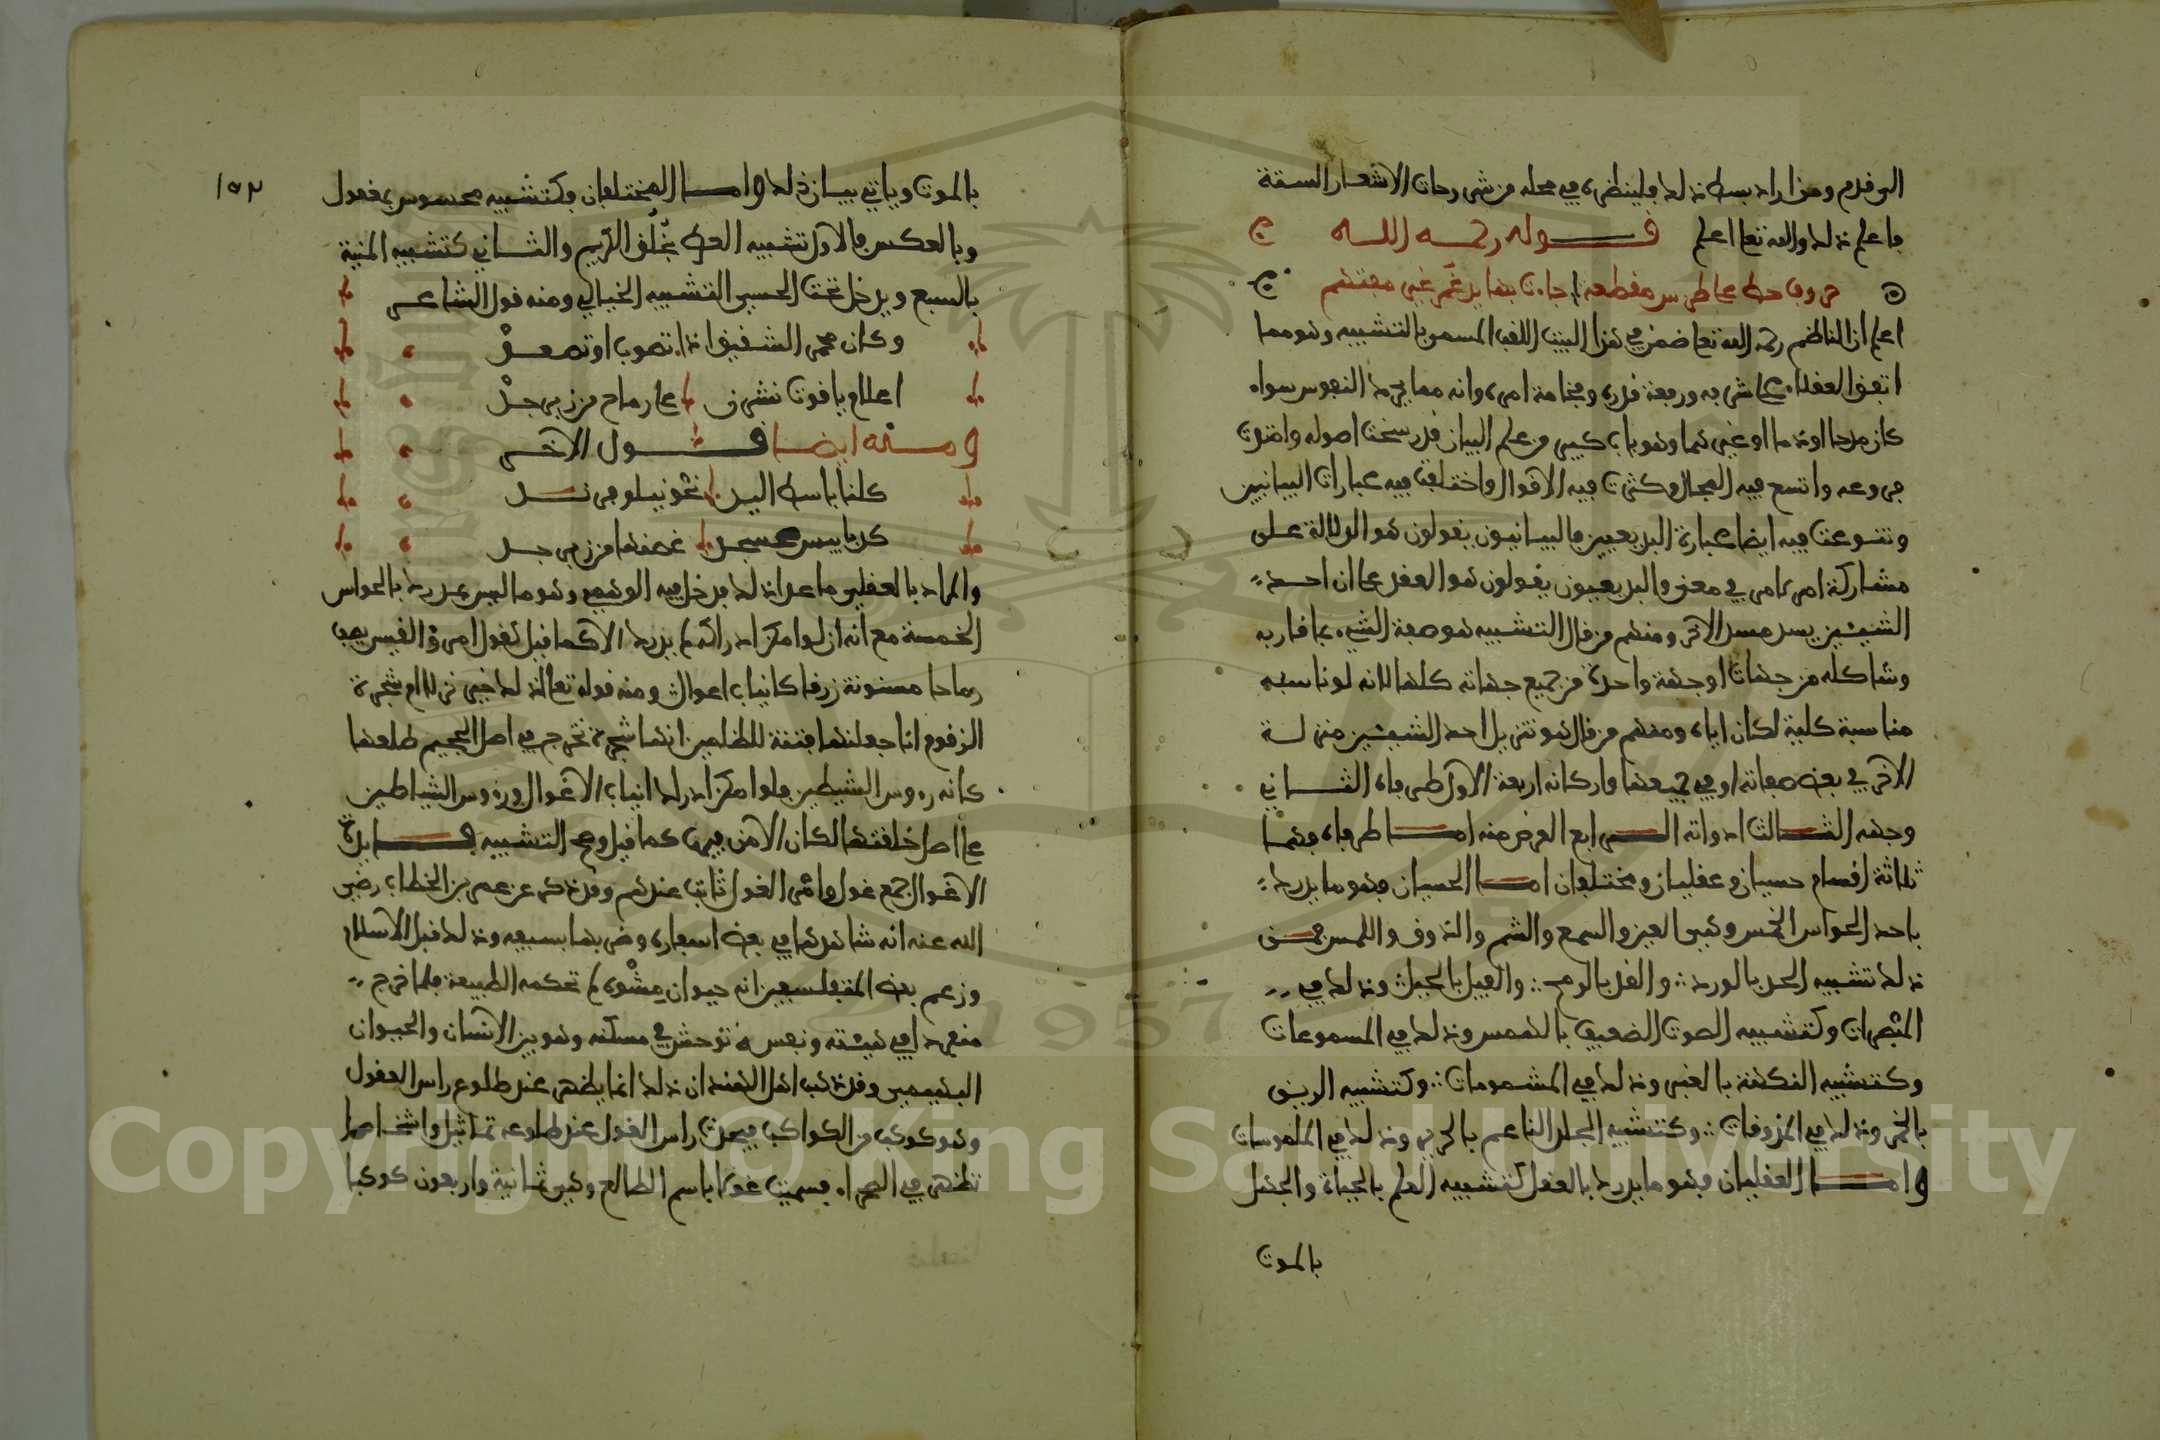 الى فدم ومن اراد بسط ذلك فلينظره في محله من شروحات الاشعار الستة
فاعلم ذلك والله تعا اعلم قوله رحمه الله
حروف خط على طرس مقطعة جاءت بها يد غمر غير مفتهم
اعلم ان الناظم رحمه الله تعا ضمن في هذا البيت اللقب المسمى بالتشبيه وهو مما
اتفق العقلاء على شرفه ورفعة قدره وفخامة امره وانه مما يحرك النفوس سواء
كان مدحا او ذما او غيرهما وهو باب كبير من علم البيان قد رسخت اصوله وامتدت
فروعه واتسع فيه المجال وكثرت فيه الاقوال واختلفت فيه عبارات البيانيين
وتنوعت فيه ايضا عبارة البديعيين فالبيانيون يقولون هو الدلالة على
مشاركة امر لامر في معنى والبديعيون يقولون هو العقد على ان احد
الشيئين يسد مسد الاخر ومنهم من قال التشبيه هو صفة الشيء بما قاربه
وشاكله من جهات او جهة واحدة من جميع جهاته كلها لانه لو ناسبه
مناسبة كلية لكان اياه ومنهم من قال هو تنزيل احد الشيئين منزلة
الاخر في بعض صفاته او في جميعها واركانه اربعة الاول طرفاه الثاني
وجهه الثالث ادواته الرابع الغرض منه اما طرفاه فهما
ثلاثة اقسام حسيان وعقليان ومختلفان اما الحسيان فهو ما يدرك
باحد الحواس الخمس وهي العين والسمع والشم والذوق واللمس فمن
ذلك تشبيه الخد بالورد والقد بالرمح والفيل بالجبل وذلك في
المبصرات وكتشبيه الصوت الضعيف بالهمس وذلك في المسموعات
وكتشبيه النكهة بالعنبر وذلك في المشمومات وكتشبيه الريق
بالخمر وذلك في المذوقات وكتشبيه الجلد الناعم بالحرير وذلك في الملموسات
واما العقليان فهو ما يدرك بالعقل كتشبيه العلم بالحياة والجهل
بالموت
١٥٢
بالموت وياتي بيان ذلك واما المختلفان فكتشبيه محسوس بمعقول
وبالعكس فالاول تشبيه العطر بخلق الكريم والثاني كتشبيه المنية
بالسبع ويدخل تحت الحسي التشبيه الخيالي ومنه قول الشاعر
وكان محمر الشقيق اذا تصوب او تصعد
اعلام ياقوت نشرن على رماح من زبرجد
ومنه ايضا قول الاخر
كلنا باسط اليد نحو نيلوفر ند
كدبابيس عسجد غصنها من زبرجد
والمراد بالعقلي ما عدا ذلك فدخل فيه الوهمي وهو ما ليس يدرك بالحواس
الخمسة مع انه لو امكن ادراكه لم يدرك الا كما قيل كقول امرؤ القيس يصف
رماحا مسنونة زرقا كانياب اغوال ومنه قوله تعالى اذلك خير نزلا ام شجرة
الزقوم انا جعلنها فتنة للظلمين انها شجرة تخرج في اصل الجحيم طلعها
كانه رءوس الشيطين فلو امكن ادراك انياب الاغوال ورءوس الشياطين
على اصل خلقتها لكان الامر فيها كما قيل وصح التشبيه فايدة
الاغوال جمع غول وامر الغول ثابت عندهم وقد ذكر عن عمر بن الخطاب رضي
الله عنه انه شاهدها في بعض اسفاره وضربها بسيفه وذلك قبل الاسلام
وزعم بعض المتفلسفين انه حيوان مشوه لم تحكمه الطبيعة فلما خرج
منفردا في هيئته ونفسه توحش في مسكنه وهو بين الانسان والحيوان
البهيمي وقد ذهب اهل الهند ان ذلك انما يظهر عند طلوع راس الغول
وهو كوكب من الكواكب فيحدث راس الغول عند طلوعه تماثيل واشخاصا
تظهر في الصحراء فسميت غولا باسم الطالع وهي ثمانية واربعون كوكبا
Copyright © King Saud University
1957